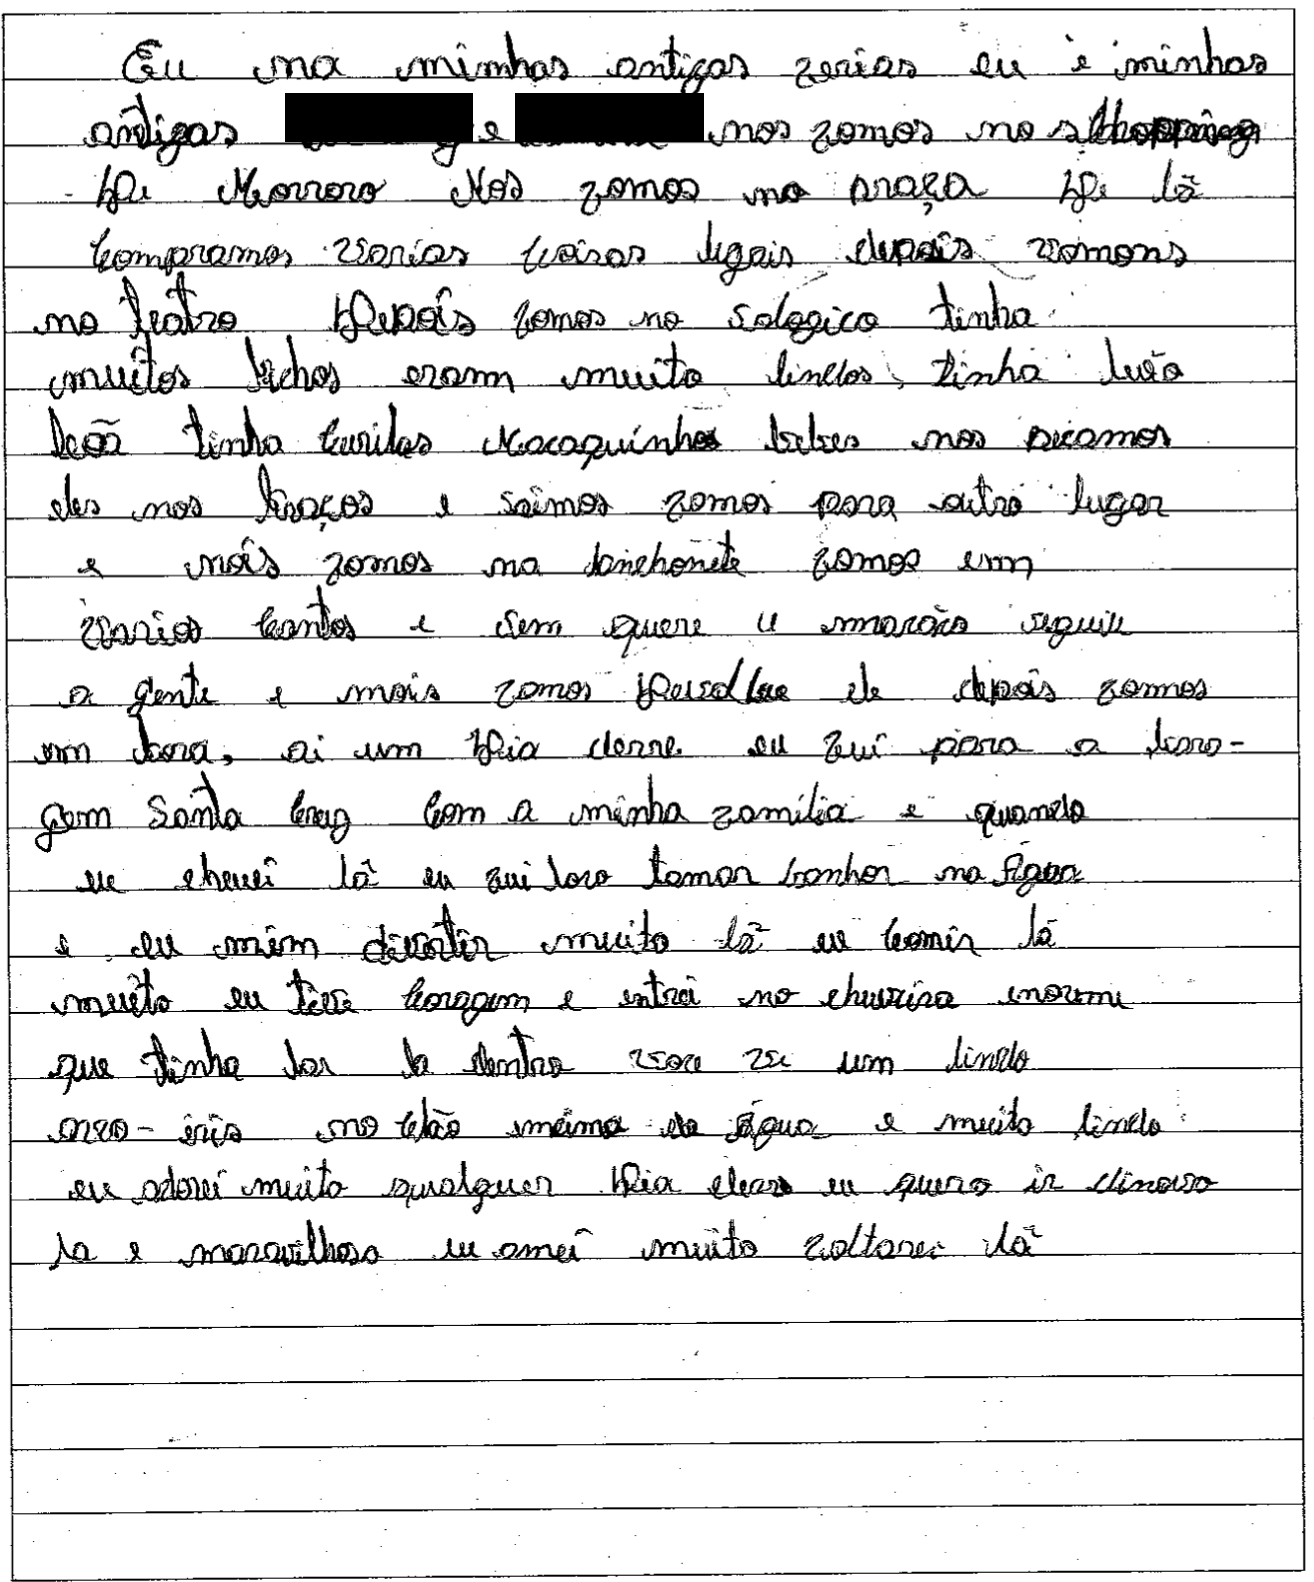 Eu na minhas antigas ferias eu e minhas
antigas e nos fomos no shopping
De Nos fomos na praça De lá
compramos varias coisas legais depois vomons
no teatro Depois fomos no sologico tinha
muitos bichos eram muito lindos, tinha
leão tinha Macaquinhos bebes nos pecamos
eles nos braços e saimos fomos para outro lugar
e mais fomos na lanchonete fomos em
varios cantos e sem quere u seguiu
a gente e mais fomos ele depois fomos
em bora, ai um Dia derre eu fui para a bara-
gem Santa Cruz com a minha família e quando
eu cheuei lá eu fui loro tomar banhor na Água
e eu mim divertir muito lá eu comir lá
muito eu tive coragem e entrei no enorme
que tinha lar la dentro voce ve um lindo
arco-íris no da água e muito lindo
eu adorei muito qualquer Dia eu quero ir dinovo
la e maravilhoso eu amei muito voltarei lá